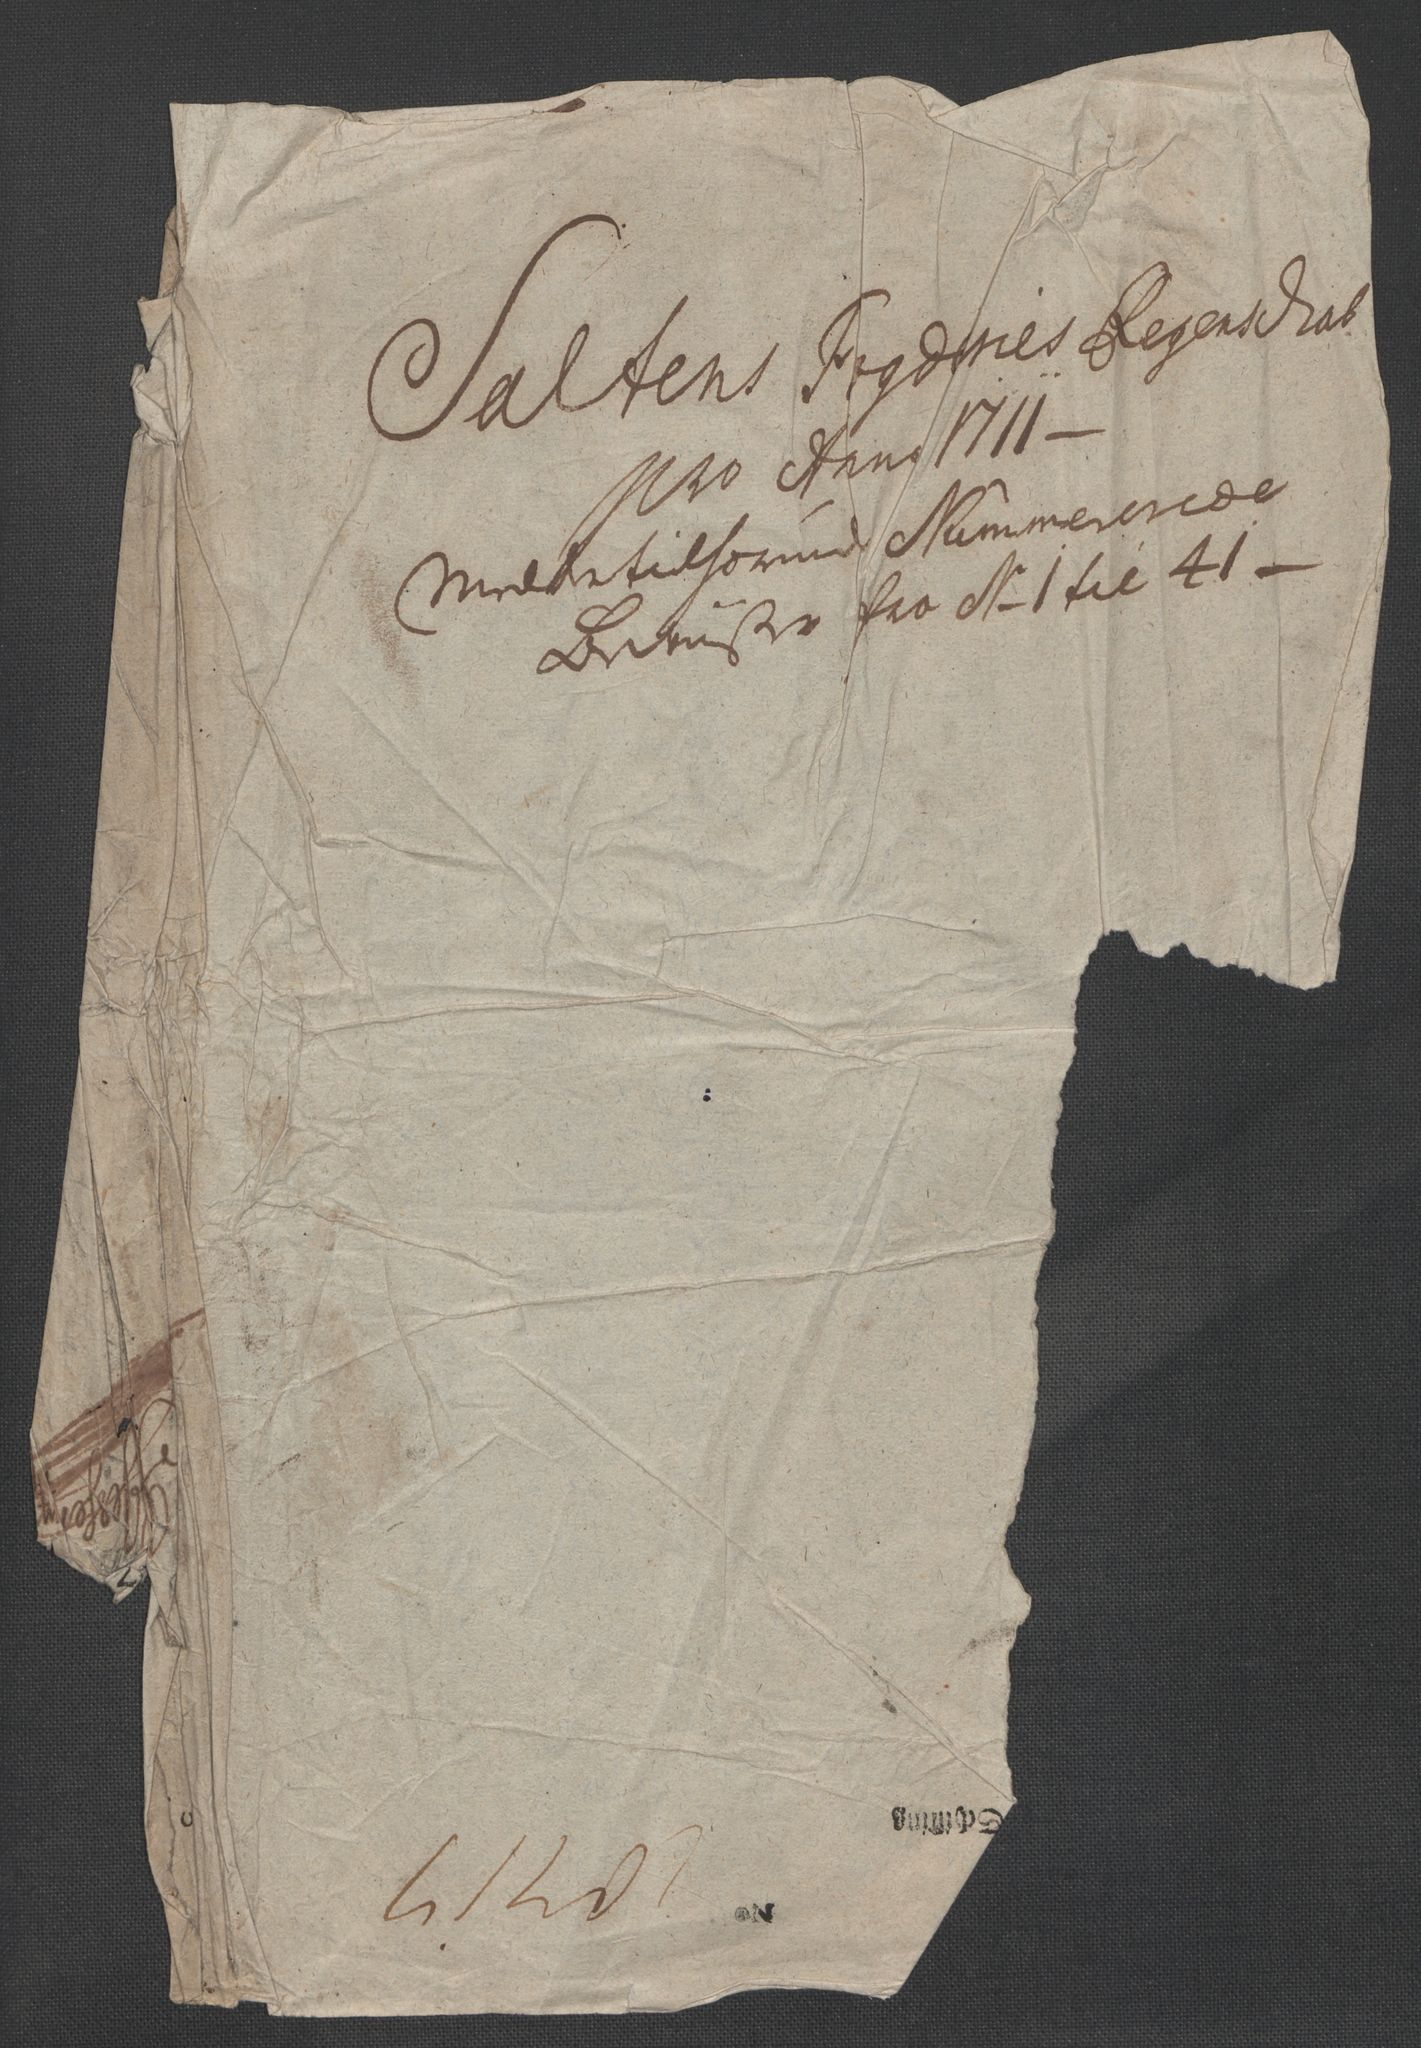 Saltens Fogderies Regenschab
pro Anno 1711 —
med dertilhörende Nummererede
Beviiser fra N 1 til 41 —
Schilling
No